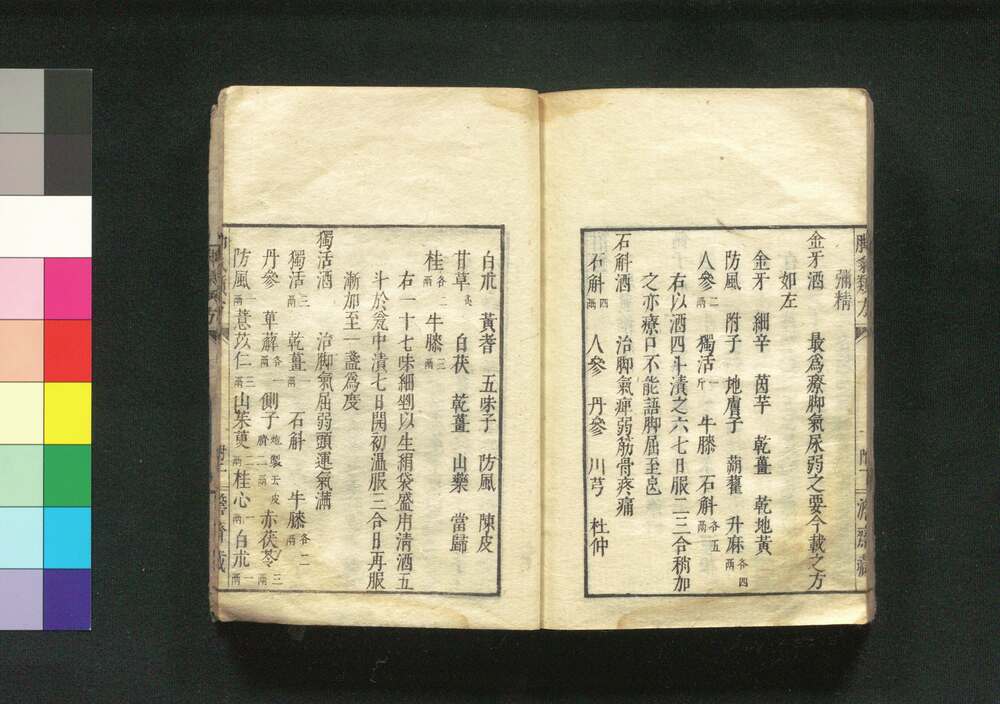 脚氣類方
彌精
金牙酒 最爲療脚氣尿弱之要今載之方
如左
金牙 細辛 茵芋 乾薑 乾地黃
防風 附子 地膚子 蒴藋 升麻各四兩
人參二兩 獨活一斤 牛膝 石斛各五兩
右以酒四斗漬之六七日服二三合稍加
之亦療口不能語脚屈至良
石斛酒 治脚氣痺弱筋骨疼痛
石斛四兩 人參 丹參 川芎 杜仲
白朮 黃耆 五味子 防風 陳皮
甘草炙 白茯 乾薑 山藥 當歸
桂各二兩 牛膝三兩
右一十七味細剉以生絹袋盛用清酒五
斗於瓮中漬七日開初温服三合日再服
漸加至一盞爲度
獨活酒 治脚氣屈弱頭運氣滿
獨活三兩 乾薑一兩 石斛 牛膝各二兩
丹參 萆薢各一兩 側子炮製去皮臍二兩 赤茯苓三兩
防風一兩 薏苡仁三兩 山茱萸二兩 桂心一兩 白朮一兩